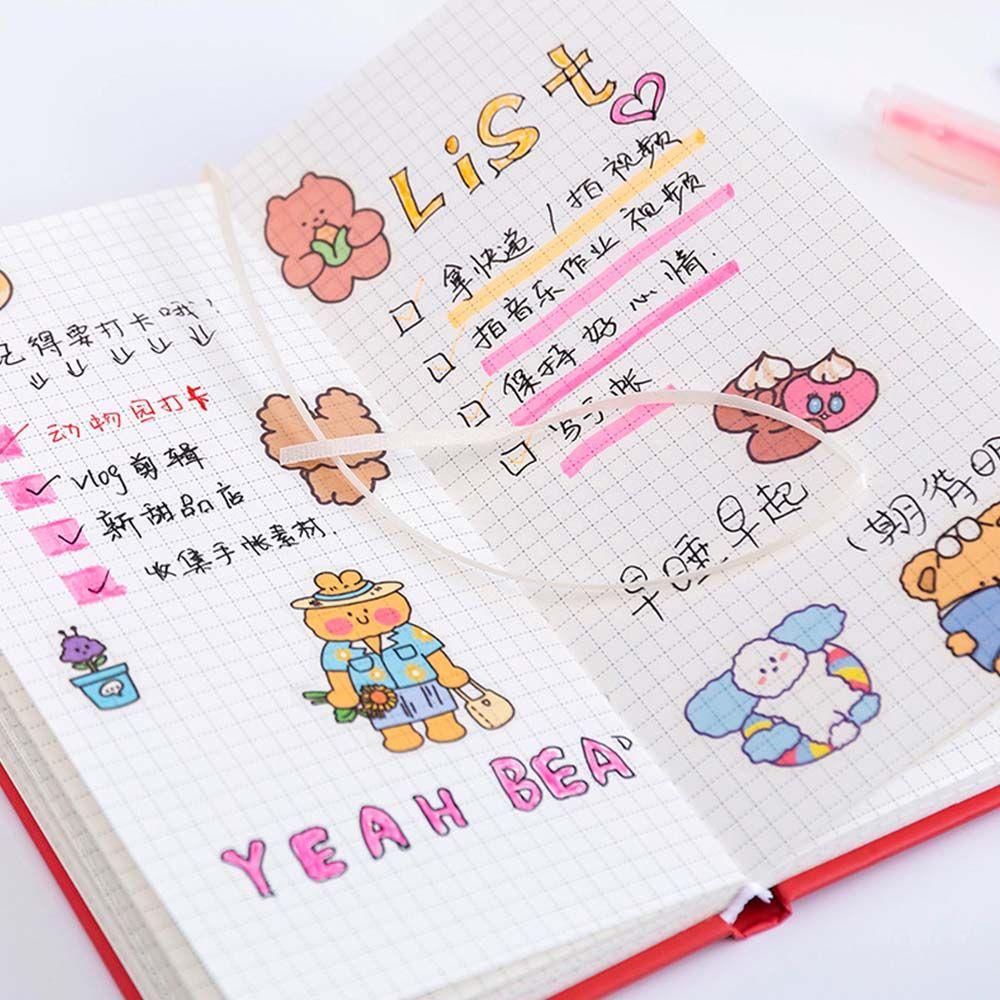 记得要打卡哦!
动物园打卡
vlog剪辑
新甜品店
收集手帐素材.
YEAH BEA
List
拿快递/拍视频
拍音乐作业视频
保持好心情.
写手帐
早睡早起
(期待明